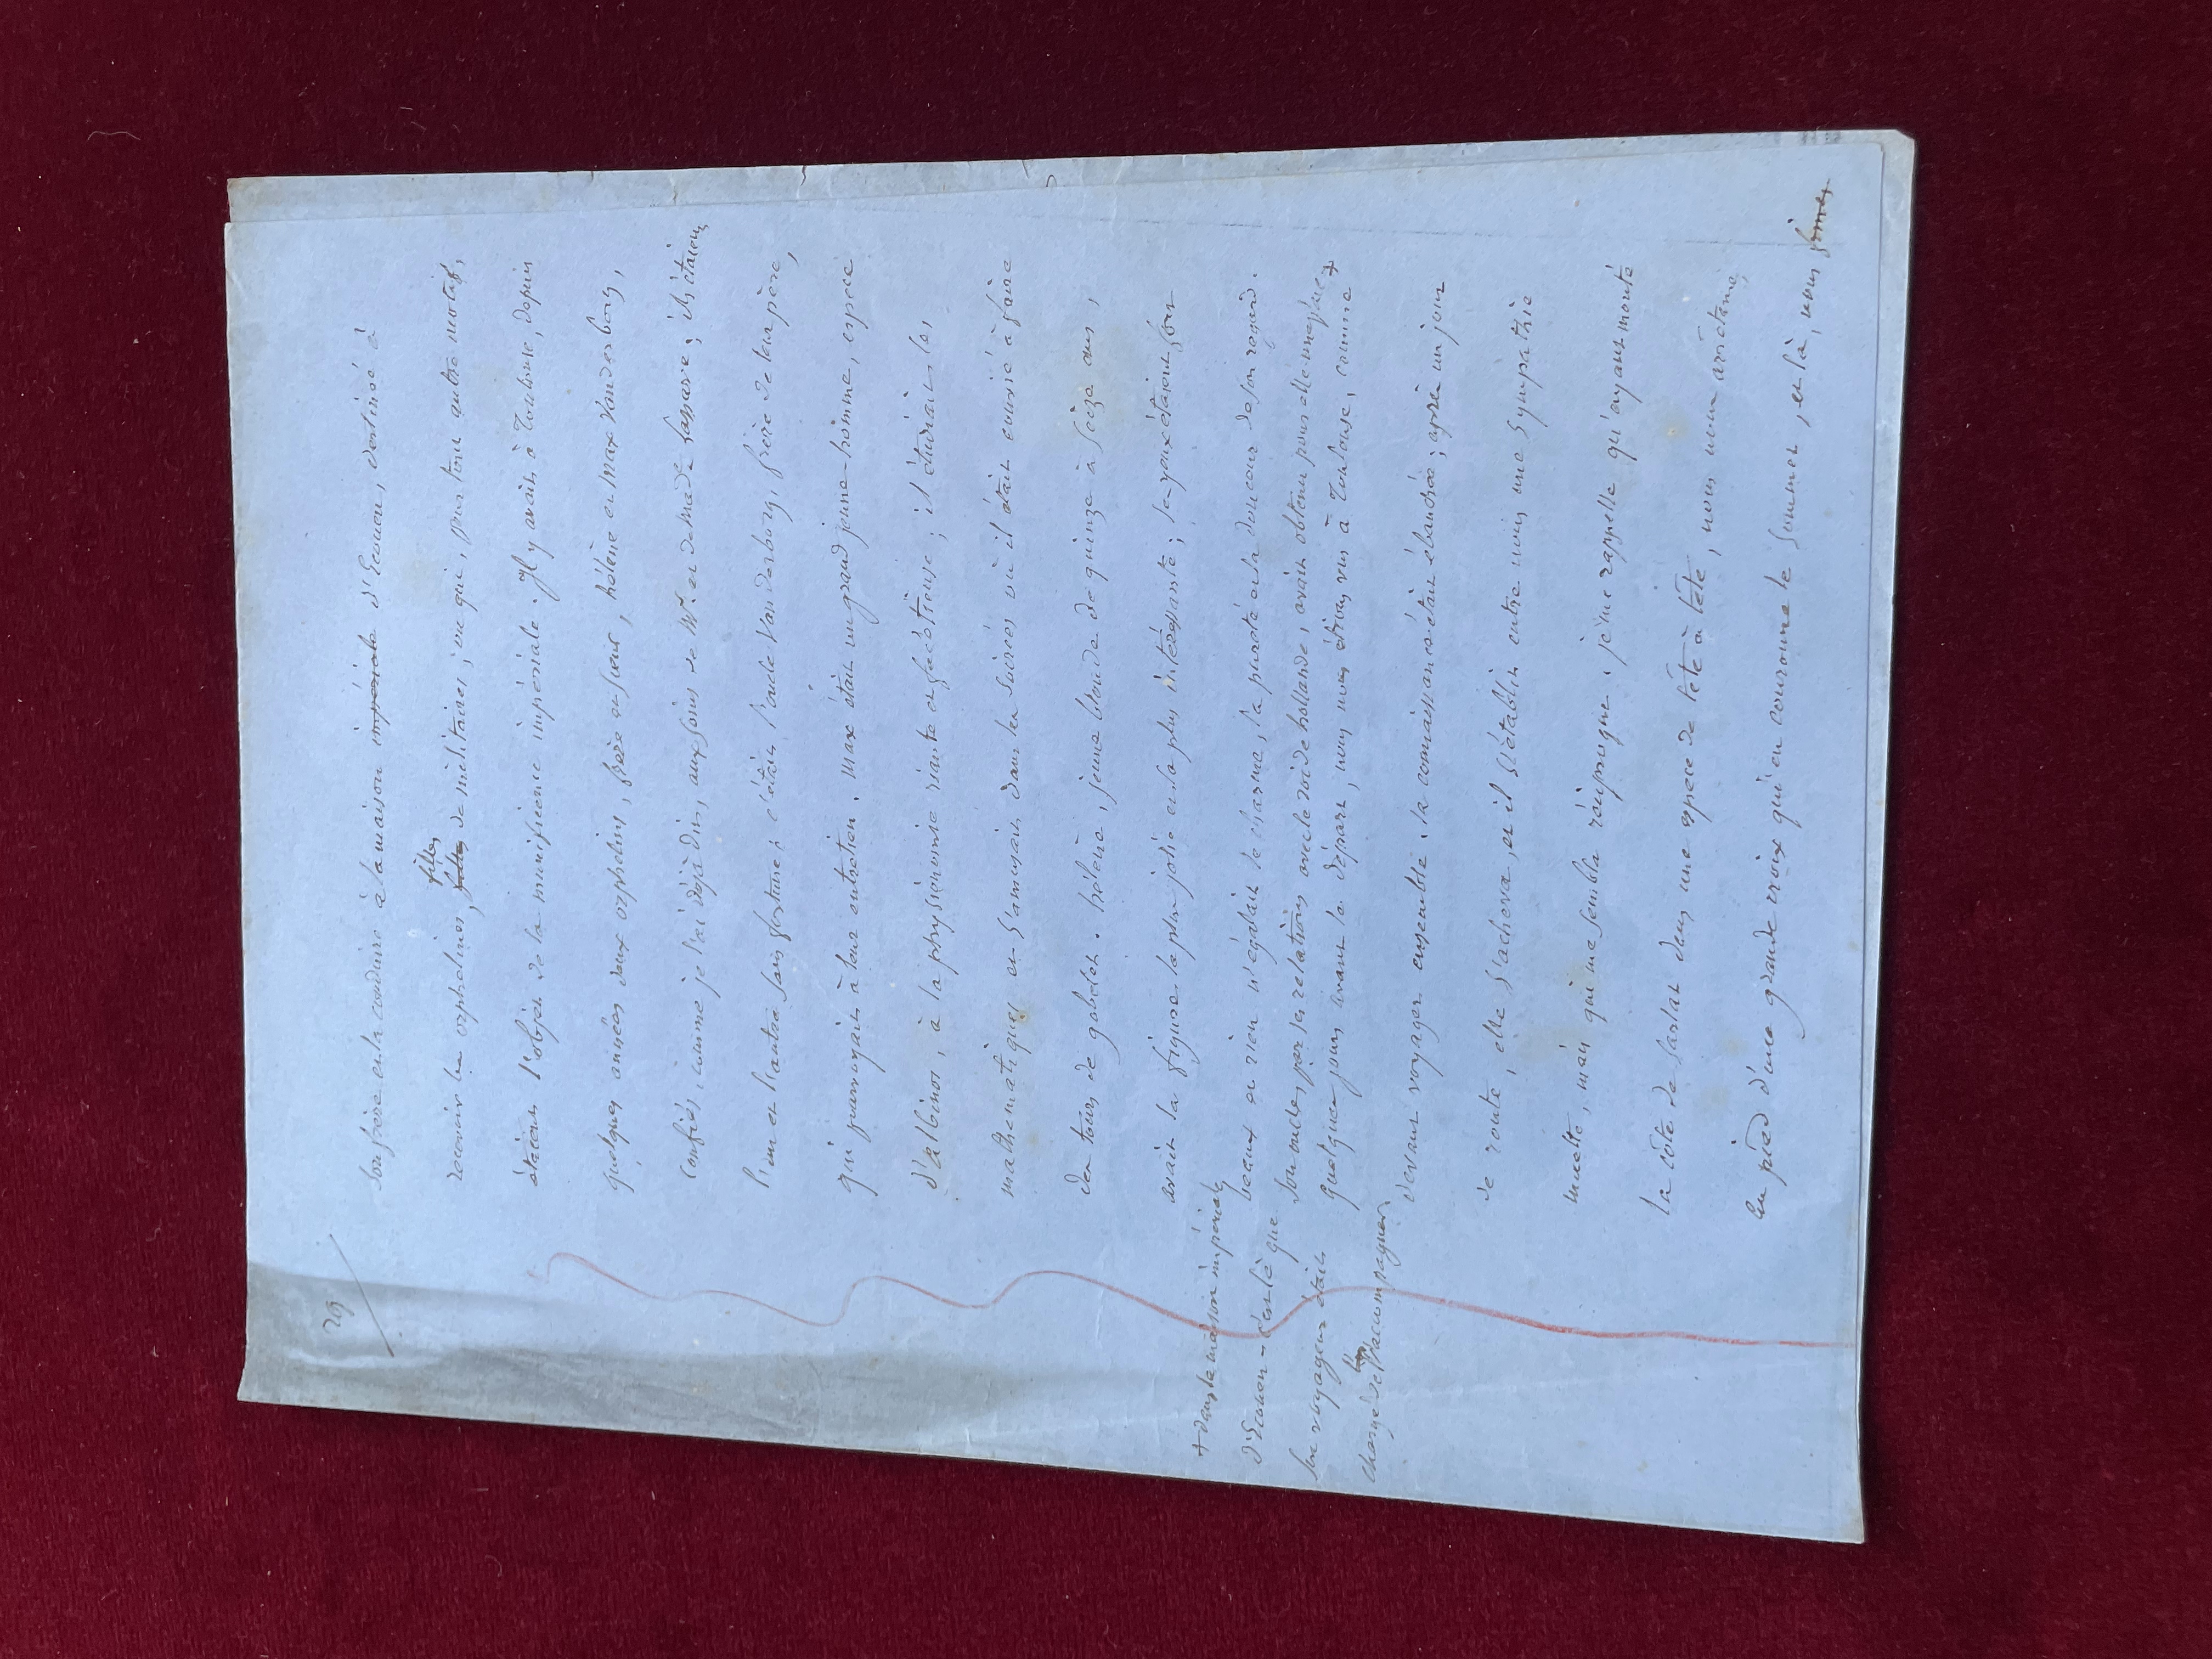 29
son frère est la conduire à la maison impériale d'Ecouen, destinée à
recevoir les orphelines, filles
filles de militaires, ou qui, pour tout autre motif,
étaient l'objet de la munificence impériale. Il y avait à Toulouse, depuis
quelques années deux orphelins, frère et soeur, hélène et max Vanderborg,
confiés, comme je l'ai déjà dit, aux soins de Mr. et de made. ; ils étaient
l'un et l'autre sans fortune; c'était l'oncle Vanderborg, frère de leur père,
qui pourvoyait à leur entretien. max était un grand jeune-homme, espèce
d'albinos, à la physionomie riante et facétieuse; il étudiait les
mathématiques et s'amusait dans les soirées où il était convié à faire
des tours de gobelet. hélène, jeune blonde de quinze à seize ans,
avait la figure la plus jolie et la plus intéressante; les yeux étaient fort
beaux et rien n'égalait le charme, la pureté et la douceur de son regard.
son oncle, par ses relations avec le roi de hollande, avait obtenu pour elle une place +
+ dans la maison impériale
d'Ecouen - c'est là que
son voyageur était
chargé de l'accompagner
quelques jours avant le départ, nous nous étions vus à Toulouse, comme
devant voyager ensemble. la connaissance était ébauchée; après un jour
de route, elle s'acheva, et il s'établit entre nous une sympathie
muette, mais qui me sembla réciproque. je me rappelle qu'ayant monté
la côte de Sarlat dans une espèce de tête à tête, nous nous arrêtâmes,
au pied d'une grande croix qui en couronne le sommet, et là, nous fîmes